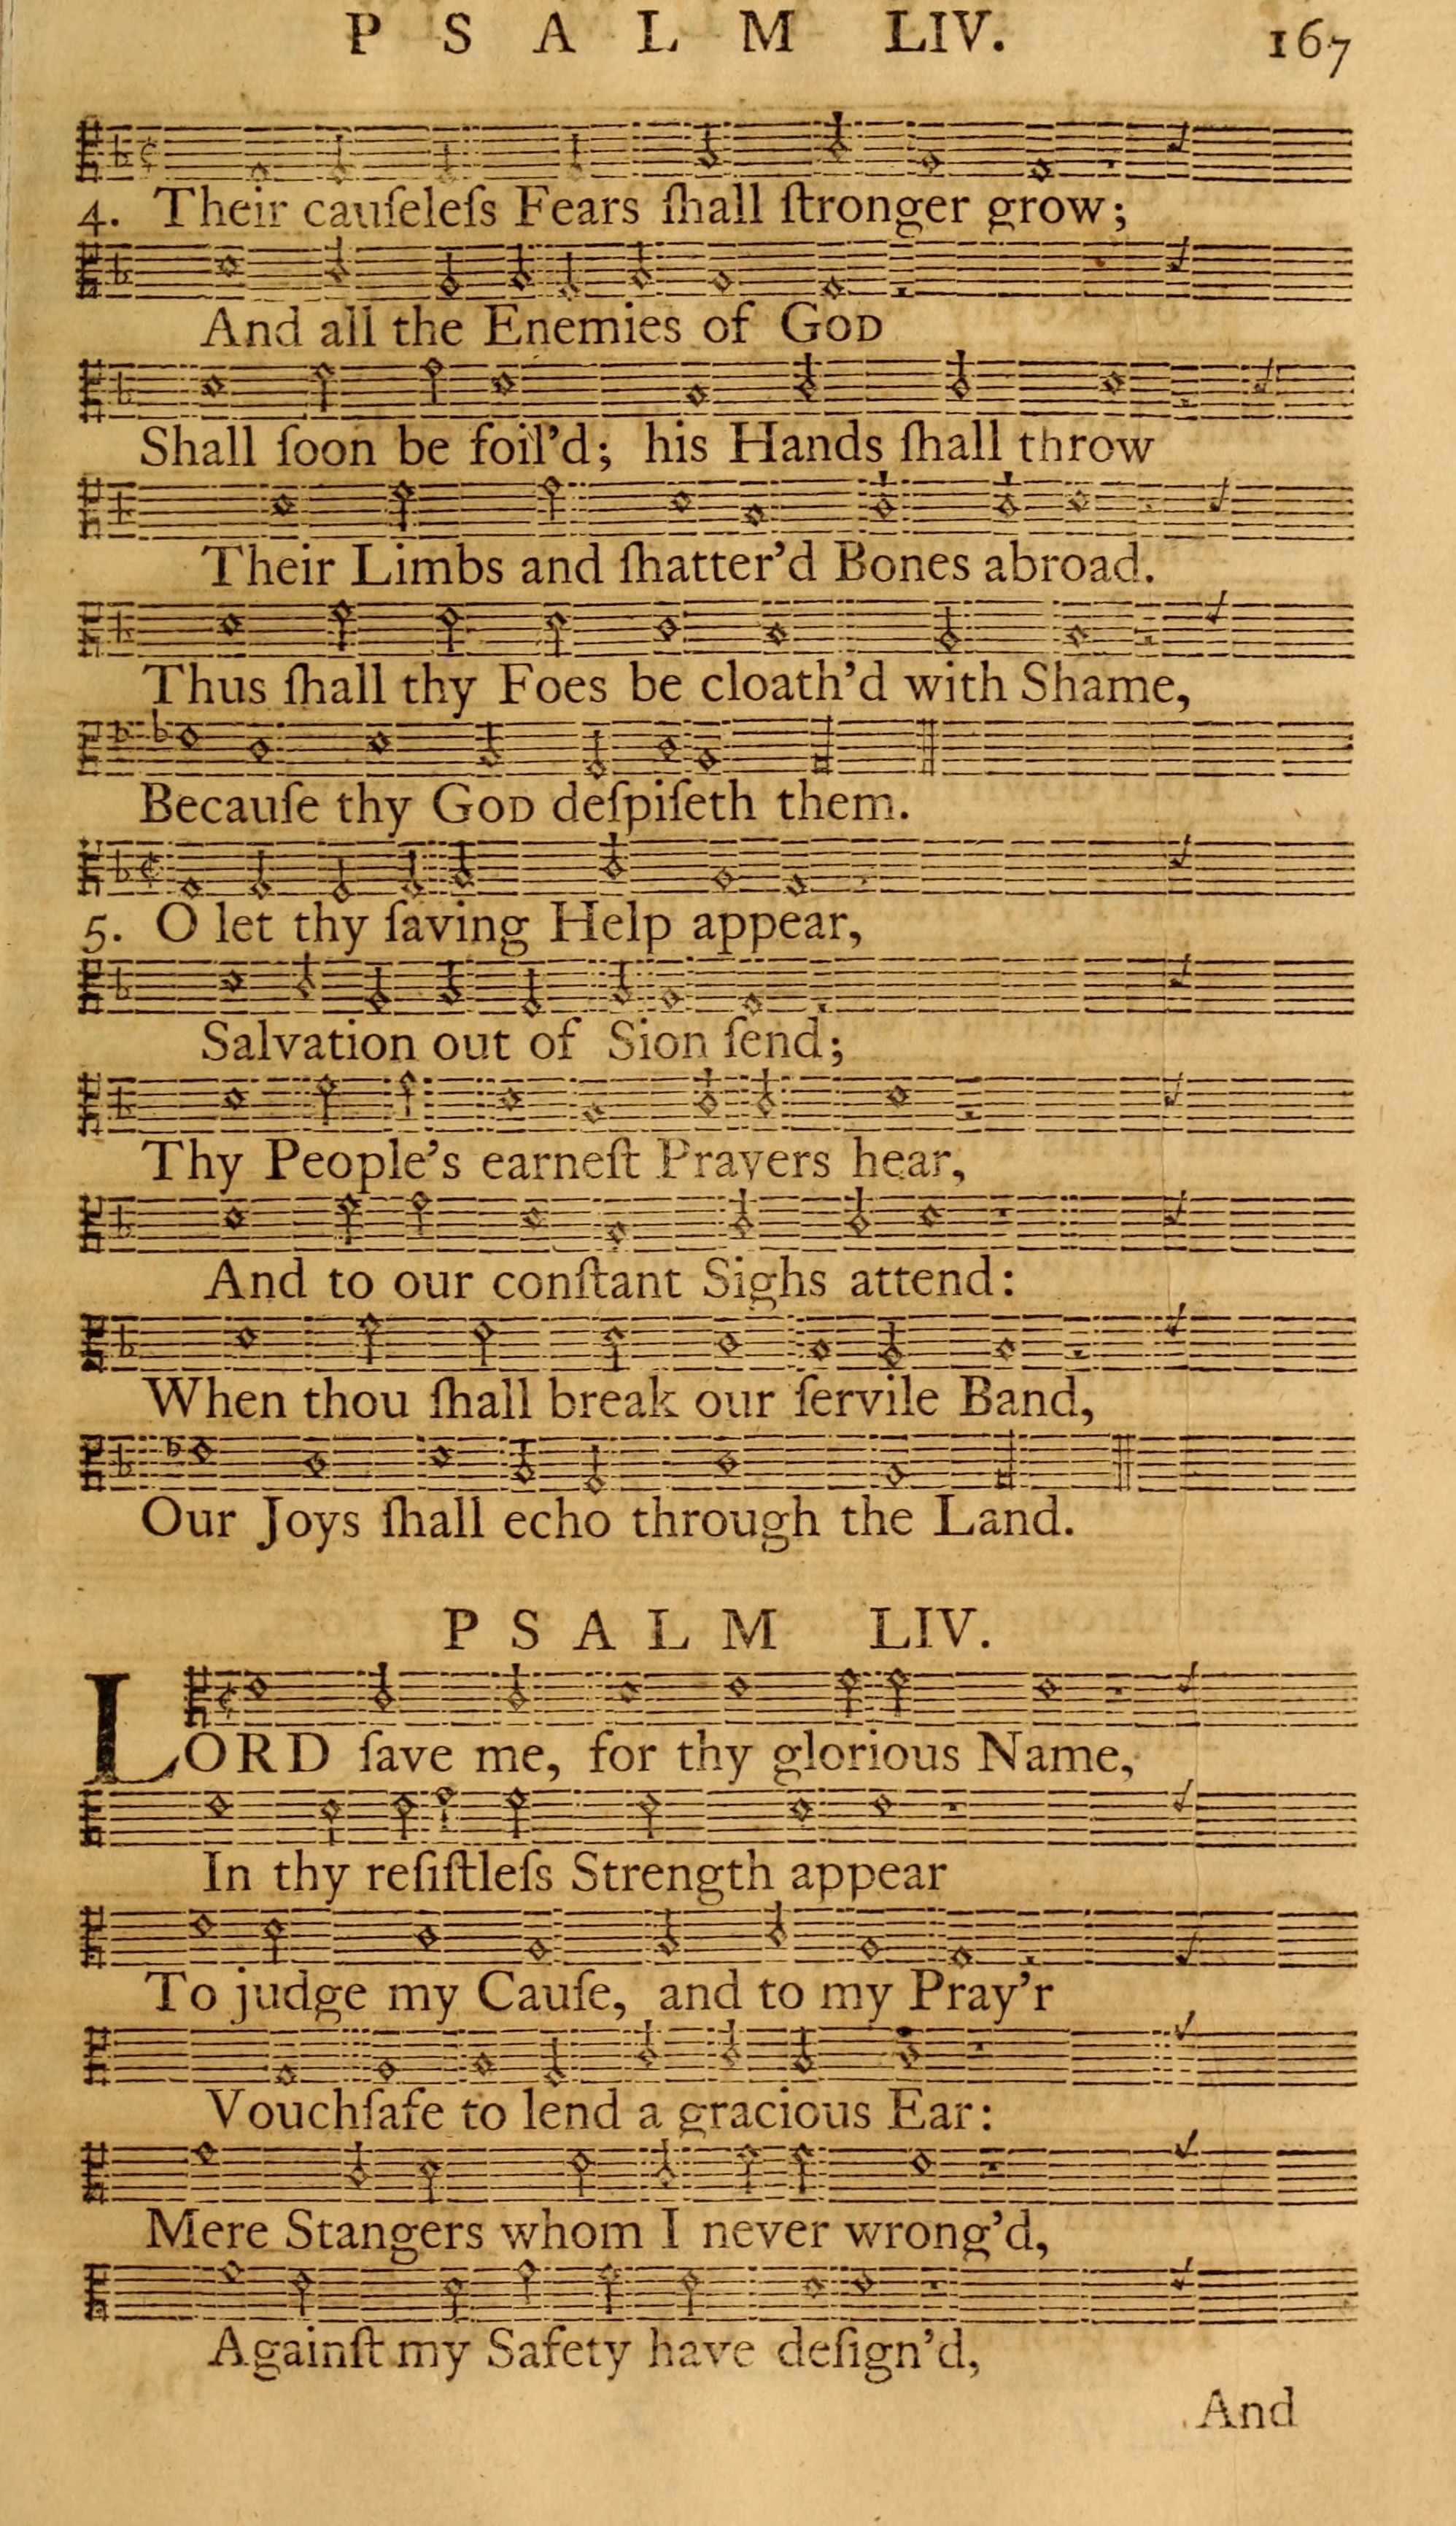 PSALM LIV. 167
4. Their cauſeleſs Fears ſhall ſtronger grow;
And all the Enemies of GOD
Shall ſoon be foil’d; his Hands ſhall throw
Their Limbs and ſhatter’d Bones abroad.
Thus ſhall thy Foes be cloath’d with Shame,
Becauſe thy GOD deſpiſeth them.
5. O let thy ſaving Help appear,
Salvation out of Sion ſend;
Thy People’s earneſt Prayers hear,
And to our conſtant Sighs attend:
When thou ſhall break our ſervile Band,
Our Joys ſhall echo through the Land.
PSALM LIV.
LORD ſave me, for thy glorious Name,
In thy reſiſtleſs Strength appear
To judge my Cauſe, and to my Pray’r
Vouchſafe to lend a gracious Ear:
Mere Stangers whom I never wrong’d,
Againſt my Safety have deſign’d,
And